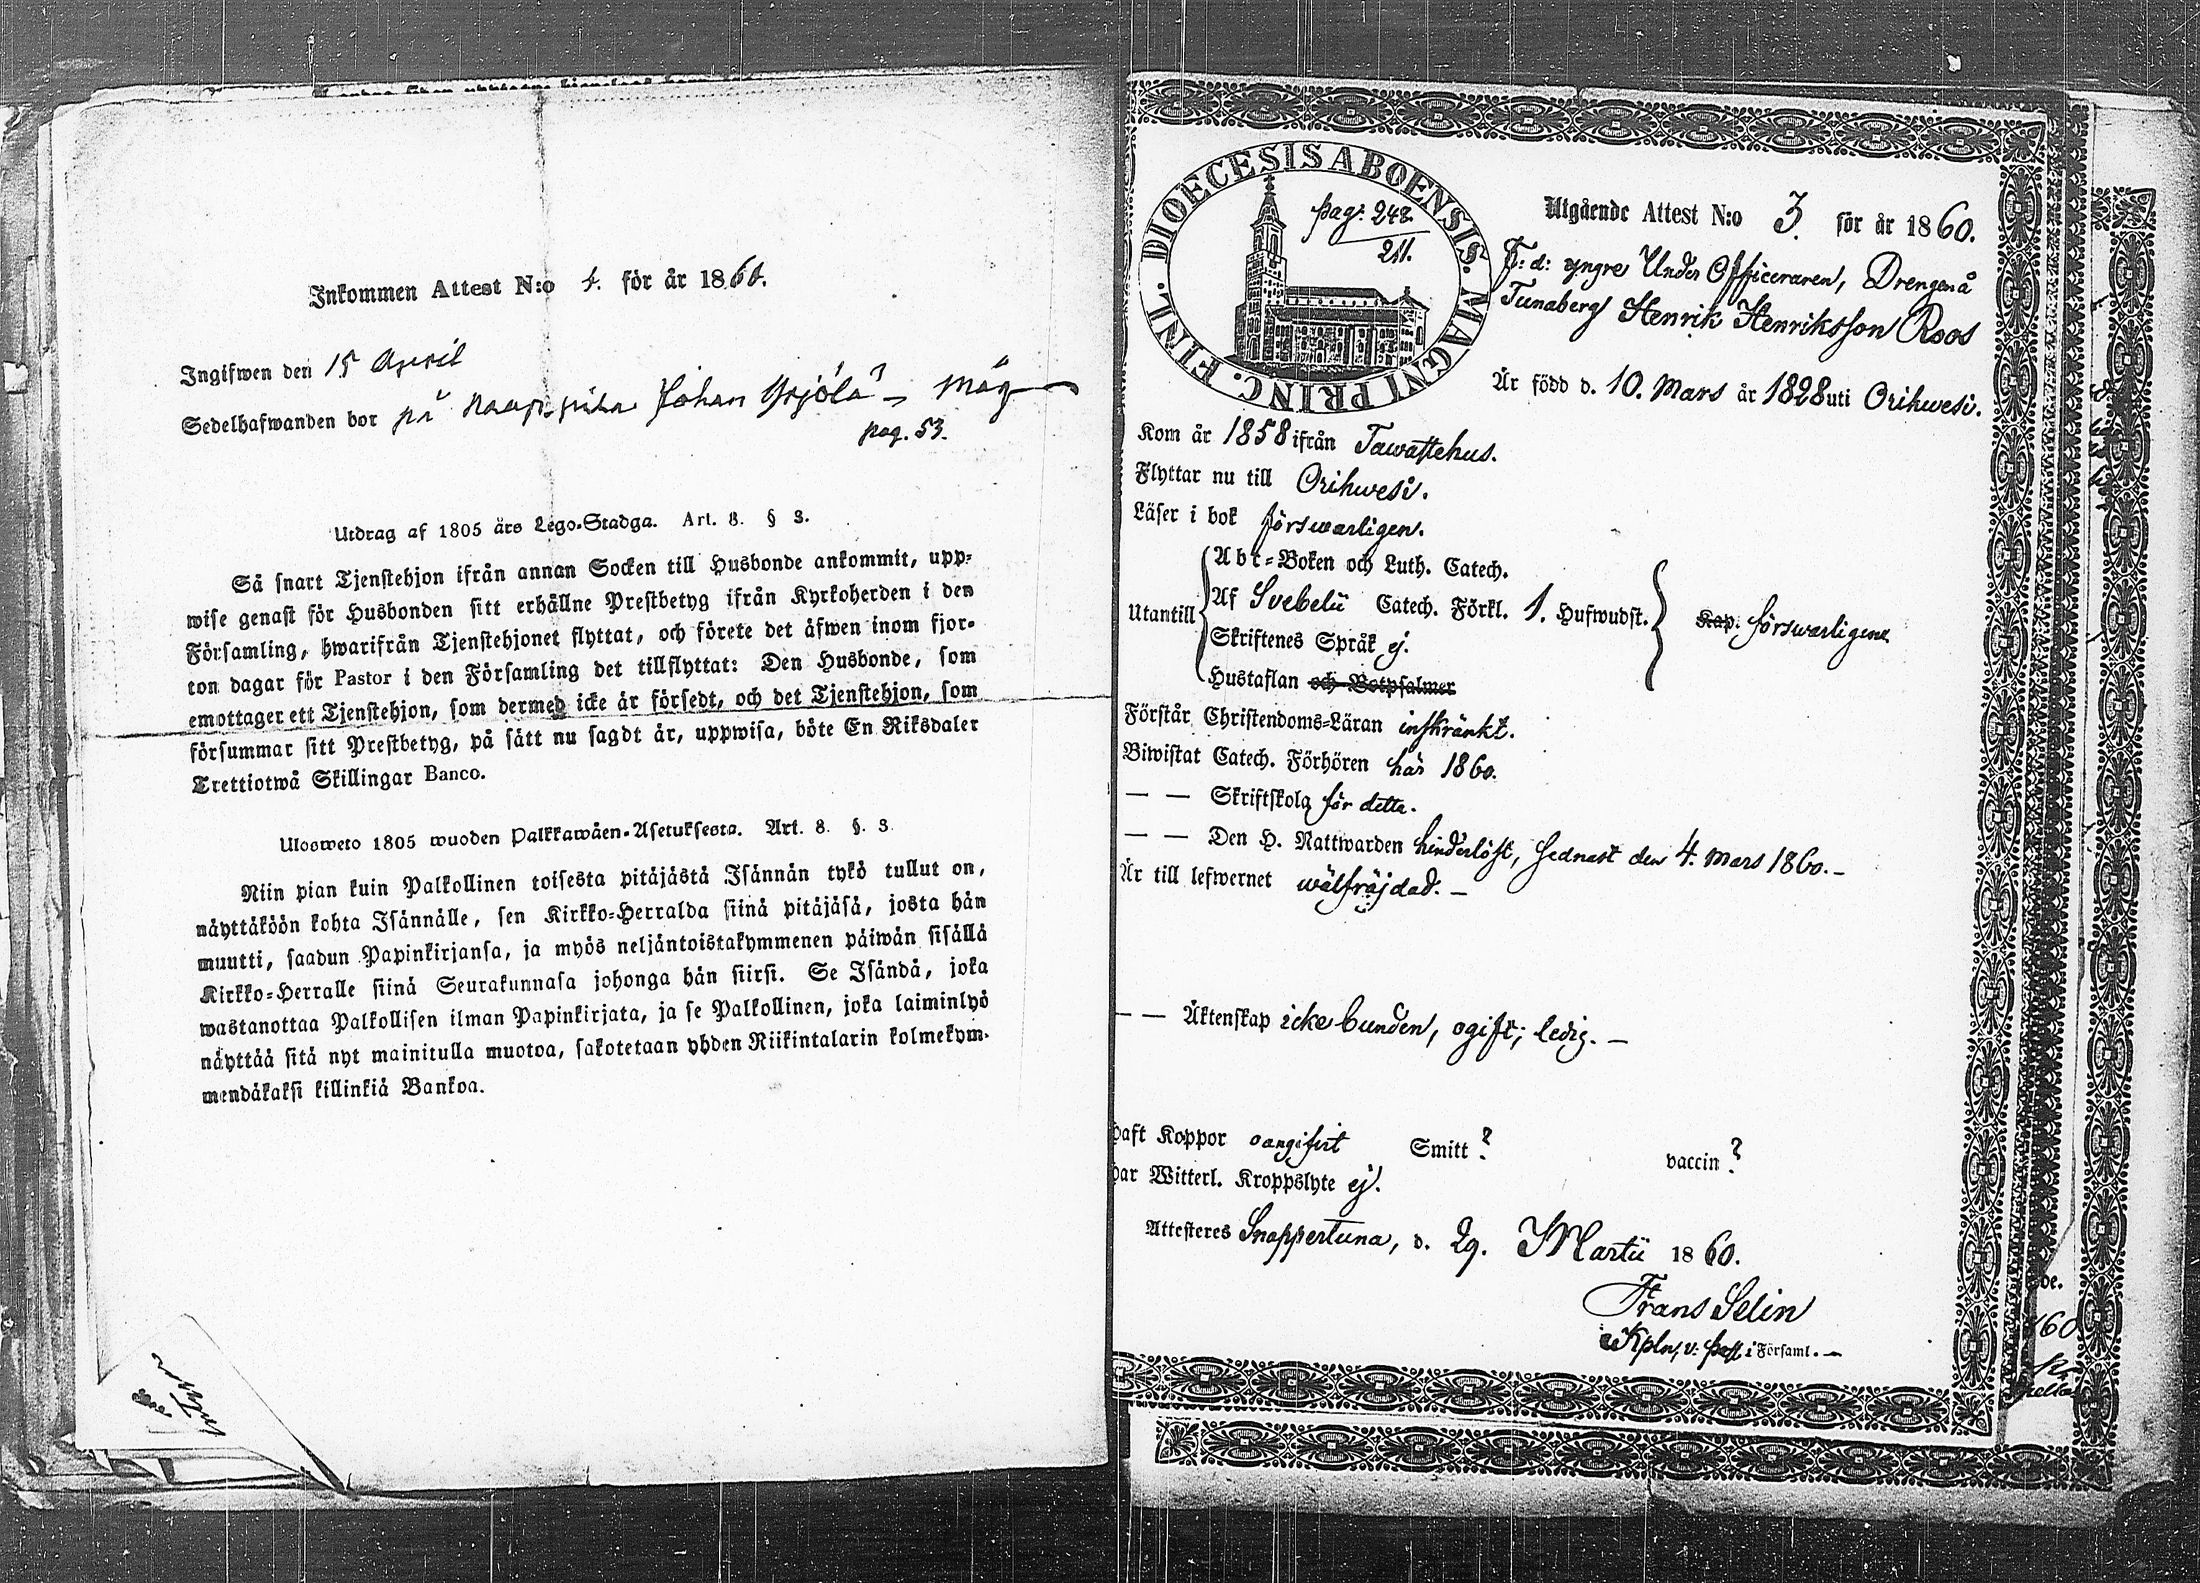 Inkommen Attest N:o 1. för år 1860.
Ingifwen den 15 April
Sedelhafwanden bor på Johan Yrjölä Måg
pag. 53.
Utdrag af 1805 års Lego-Stadga. Art. 8. § 3.
Så snart Tjenstehjon ifrån annan Socken till Husbonde ankommit, upp-
wise genast för Husbonden sitt erhållne Prestbetyg ifrån Kyrkoherden i den
Församling, hwarifrån Tjenstehjonet flyttat, och förete det äfwen inom fjor-
ton dagar för Pastor i den Församling det tillflyttat: Den Husbonde, som
emottager ett Tjenstehjon, som dermed icke är försedt, och det Tjenstehjon, som
försummar sitt Prestbetyg, på sätt nu sagdt är, uppwisa, böte En Riksdaler
Trettiotwå Skillingar Banco.
Ulosweto 1805 wuoden Palkkawäen-Asetuksesta. Art. 8. §. 3.
Niin pian kuin Palkollinen toisesta pitäjästä Isännän tykö tullut on,
näyttäköön kohta Isännälle, sen Kirkko-Herralda siinä pitäjäsä, josta hän
muutti, saadun Papinkirjansa, ja myös neljäntoistakymmenen päiwän sisällä
Kirkko-Herralle siinä Seurakunnasa johonga hän siirsi. Se Isändä, joka
wastanottaa Palkollisen ilman Papinkirjata, ja se Palkollinen, joka laiminlyö
näyttää sitä nyt mainitulla muotoa, sakotetaan yhden Riikintalarin kolmekym-
mendäkaksi killinkiä Bankoa.
DIOECESIS ABOENSIS. MAGNI PRINC. FINL.
pag. 248
211.
Utgående Attest N:o 3. för år 1860.
F: d: yngre Under Officeraren, Drengen å
Tunaberg Henrik Henriksson Roos
Är född d. 10. Mars år 1828 uti Orihwesi.
Kom år 1858 ifrån Tawastehus.
Flyttar nu till Orihwesi.
Läser i bok förswarligen.
Abc-Boken och Luth. Catech.
Utantill Af Svebelii Catech. Förkl. 1. Hufwudst. Kap. förswarligen
Skriftenes Språk ej.
Hustaflan och Botpsalmer
Förstår Christendoms-Läran inskränkt.
Biwistat Catech. Förhören här 1860.
— — Skriftskola för detta.
— — Den H. Nattwarden hinderlöst, sednast den 4. Mars 1860. —
Är till lefwernet wälfräjdad. —
— — Äktenskap icke bunden, ogift; ledig. —
haft Koppor oangifwit Smitt ? vaccin ?
har Witterl. Kroppslyte ej.
Attesteras Snappertuna, d. 29. Martii 1860.
Frans Selin
Kpln, v: past. i Församl. —